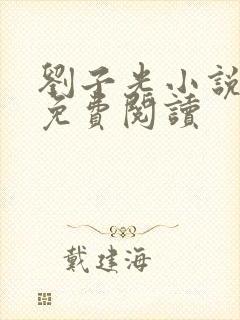 劉子光小說
免費閱讀
戴建海